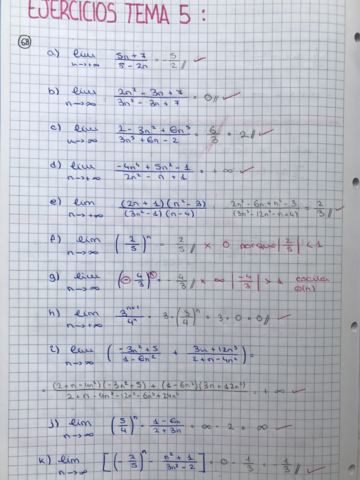 EJERCICIOS TEMA 5 :
68
a) lim n→+∞ (5n + 7)/(π - 2n) = -5/2 // ✓
b) lim n→∞ (2n² - 3n + 7)/(3n³ - 3n + 7) = 0 // ✓
c) lim n→∞ (2 - 3n² + 6n³)/(3n³ + 6n - 2) = 6/3 = 2 // ✓
d) lim n→+∞ (-4n⁴ + 5n² - 1)/(2n² - n + 1) = +∞ ✓
e) lim n→+∞ ((2n + 1)(n² - 3))/((3n² - 1)(n - 4)) = (2n³ - 6n + n² - 3)/(3n³ - 12n² - n + 4) = 2/3 // ✓
f) lim n→∞ (-2/3)ⁿ = 2/3 // × 0 porque |2/3| < 1
g) lim n→∞ (-4/3)ⁿ = -4/3 // × ∞ |-4/3| > 1
h) lim n→∞ 3ⁿ⁺¹/4ⁿ = 3 · (3/4)ⁿ = 3 · 0 = 0 // ✓
i) lim n→∞ ((-3n² + 5)/(1 - 6n²) + (3n + 12n³)/(2 + n - 4n²)) =
= ((2 + n - 4n²)(-3n² + 5) + (1 - 6n²)(3n + 12n³))/(2 + n - 4n² - 12n² - 6n³ + 24n⁴) = +∞ ✓
j) lim n→∞ (5/4)ⁿ + (1 - 6n)/(2 + 3n) = ∞ - 2 = ∞ // ✓
k) lim n→∞ [(-2/5)ⁿ - (n² + 1)/(3n² - 2)] = 0 - 1/3 = -1/3 // ✓